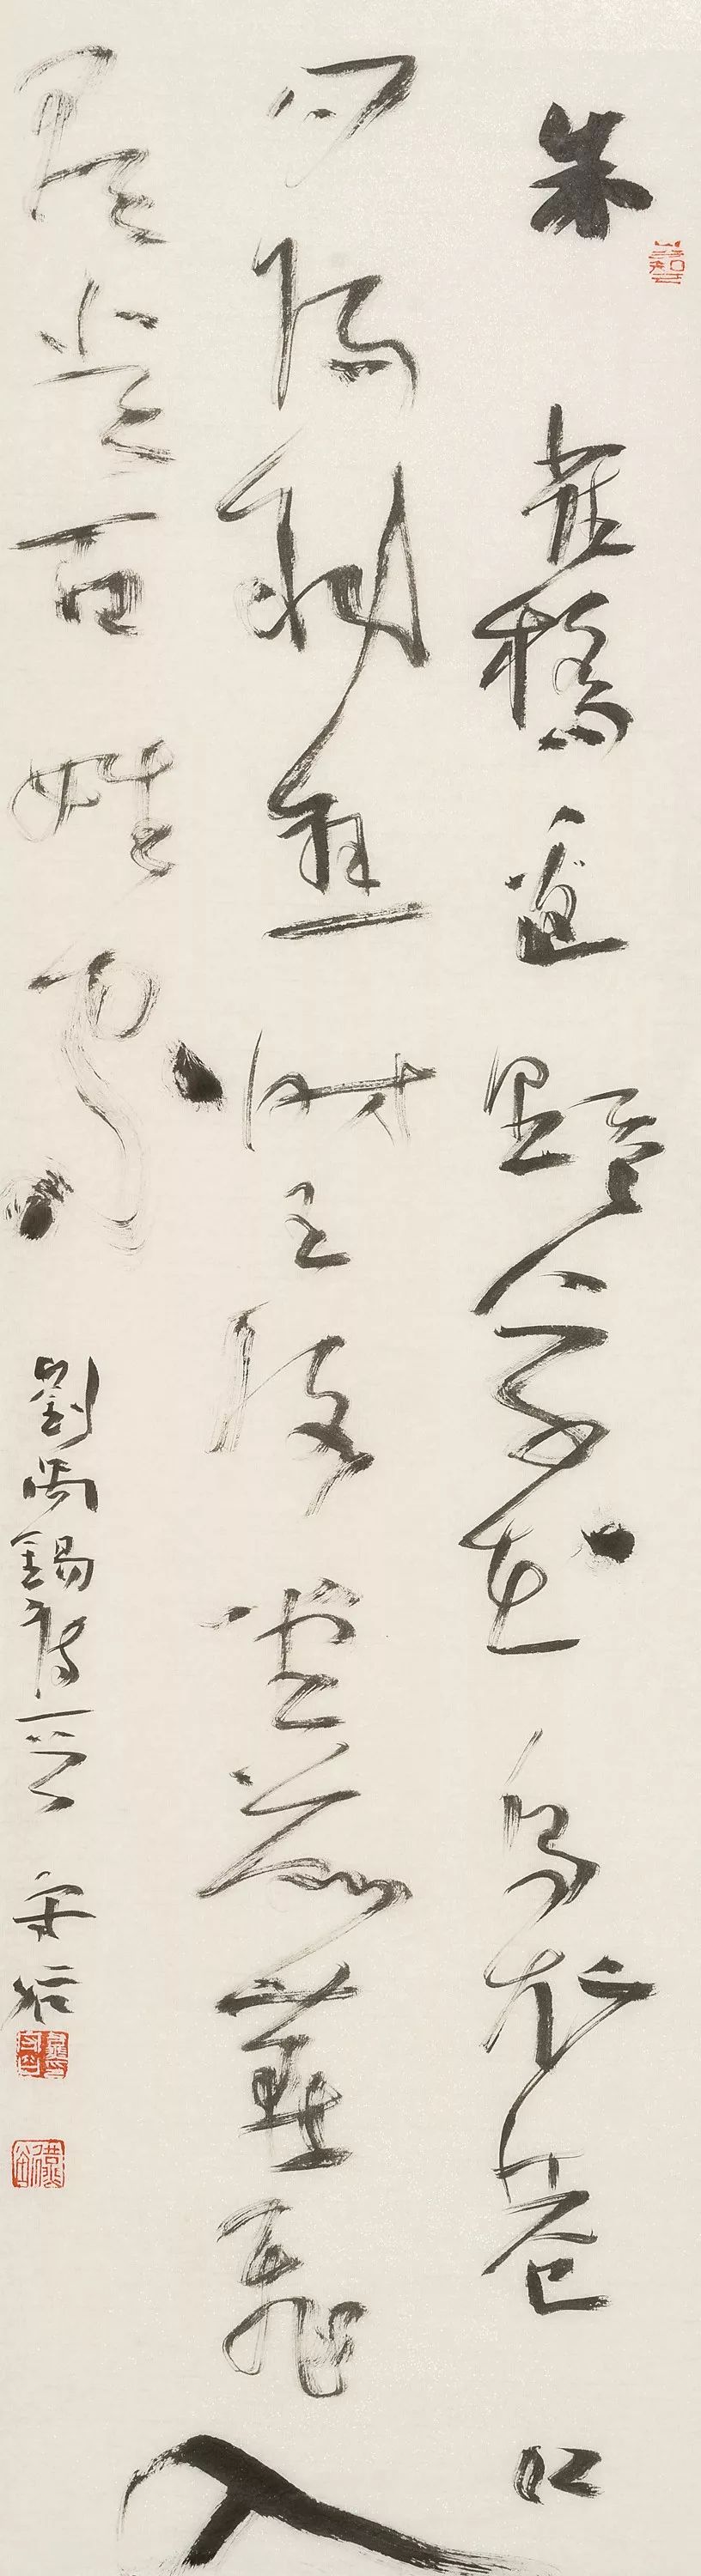 朱雀橋邊野草花烏衣巷口
夕陽斜舊時王謝堂前燕飛入
尋常百姓家
劉禹錫詩一首